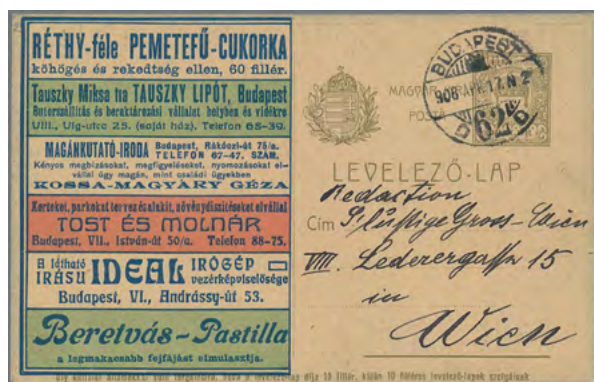 RÉTHY-féle PEMETEFŰ-CUKORKA
köhögés és rekedtség ellen, 60 fillér.
Tauszky Miksa fia TAUSZKY LIPÓT, Budapest
Butorszállitás és beraktározási vállalat helyben és vidékre
VIII., Víg-utca 25. (saját ház). Telefon 65-39.
MAGÁNKUTATÓ-IRODA Budapest, Rákóczi-út 75/a.
TELEFON 67-47. SZÁM.
Kényes megbizásokat, megfigyeléseket, nyomozásokat el-
vállal úgy magán, mint családi ügyekben
KOSSA-MAGYARY GÉZA
Kerteket, parkokat tervez és alakit, növénydiszitéseket elvállal
TOST ÉS MOLNÁR
Budapest, VII., István-út 50/a. Telefon 88-75.
A látható
IRÁSU IDEAL IRÓGÉP
vezérképviselősége
Budapest, VI., Andrássy-út 53.
Beretvás-Pastilla
a legmakacsabb fejfájást elmulasztja.
MAGYAR KIR.
POSTA
BUDAPEST
908 17. N 2
62
LEVELEZŐ-LAP
Redaction
Cím Lustige Gross-Wien
VIII. Lederergasse 15
in
Wien